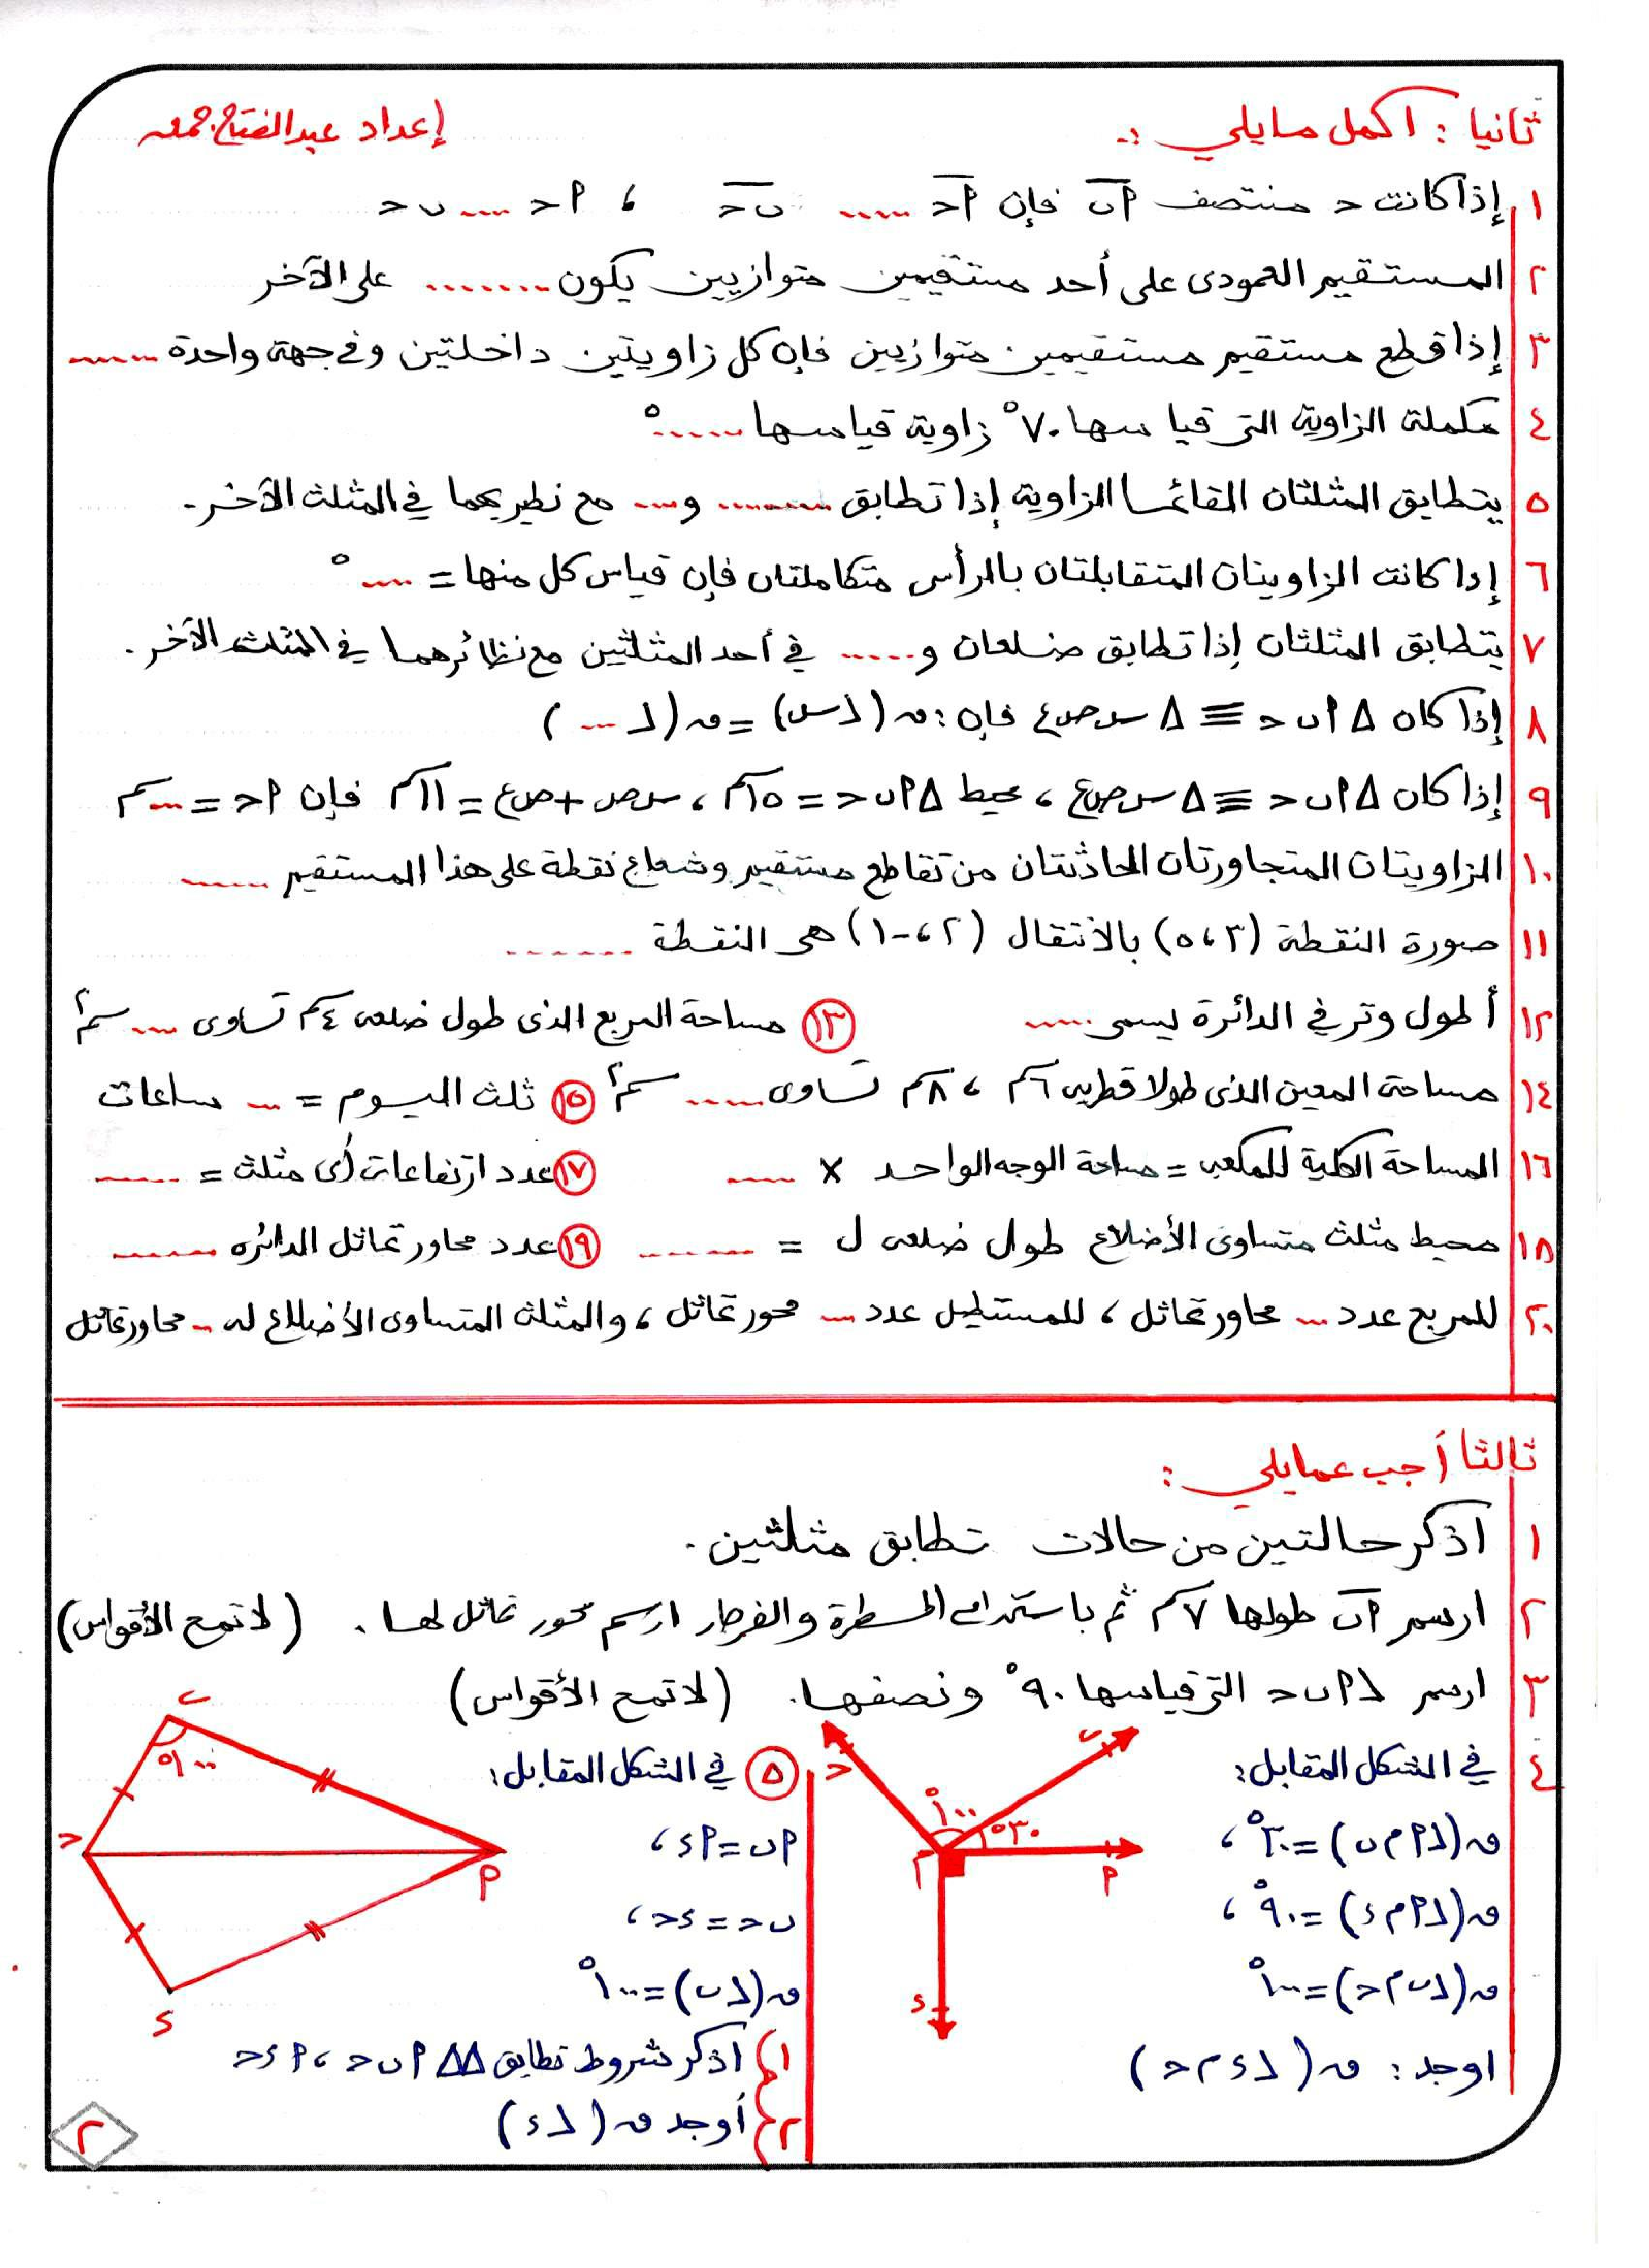 ثانيا : اكمل مايلي :-
إعداد عبدالفتاح جمعه
١ إذا كانت ح منتصف اب فإن اح ..... بح ، اح .... ب ح
٢ المستقيم العمودى على أحد مستقيمين متوازيين يكون ....... على الآخر
٣ إذا قطع مستقيم مستقيمين متوازيين فإن كل زاويتين داخلتين وفى جهة واحدة ......
٤ مكملة الزاوية التى قياسها ٧٠° زاوية قياسها ......°
٥ يتطابق المثلثان القائما الزاوية إذا تطابق ........ و.... مع نظيريهما في المثلث الآخر.
٦ إذا كانت الزاويتان المتقابلتان بالرأس متكاملتان فإن قياس كل منها = ....°
٧ يتطابق المثلثان إذا تطابق ضلعان و ..... في أحد المثلثين مع نظائرهما في المثلث الآخر.
٨ إذا كان Δ ا ب ح ≡ Δ س ص ع فإن : ق (∠س) = ق (∠ ... )
٩ إذا كان Δ ا ب ح ≡ Δ س ص ع ، محيط Δ ا ب ح = ١٥سم ، س ص + ص ع = ١١سم فإن ا ح = ...سم
١٠ الزاويتان المتجاورتان الحادثتان من تقاطع مستقيم وشعاع نقطة على هذا المستقيم ......
١١ صورة النقطة (٣ ، ٥) بالانتقال (٢ ، -١) هى النقطة .......
١٢ أطول وتر في الدائرة يسمى ..... ١٣ مساحة المربع الذى طول ضلعه ٤سم تساوى .... سم٢
١٤ مساحة المعين الذى طولا قطريه ٦سم ، ٨سم تساوى ..... سم٢ ١٥ ثلث اليوم = ... ساعات
١٦ المساحة الكلية للمكعب = مساحة الوجه الواحد × ..... ١٧ عدد ارتفاعات أى مثلث = ......
١٨ محيط مثلث متساوى الأضلاع طول ضلعه ل = ........ ١٩ عدد محاور تماثل الدائره .......
٢٠ للمربع عدد ... محاور تماثل ، للمستطيل عدد ... محور تماثل ، والمثلث المتساوى الأضلاع له .. محاور تماثل
ثالثا أجب عمايلي :
١ اذكر حالتين من حالات تطابق مثلثين .
٢ ارسم اب طولها ٧سم ثم باستخدام المسطرة والفرجار ارسم محور تماثل لها . (لا تمح الأقواس)
٣ ارسم ∠ ا ب ح التى قياسها ٩٠° ونصفها . (لا تمح الأقواس)
٤ في الشكل المقابل :
ق (∠ ا م ب) = ٣٠° ،
ق (∠ ا م ء) = ٩٠° ،
ق (∠ ب م ح) = ١٠٠°
اوجد : ق (∠ ء م ح)
ح
ب
١٠٠°
٣٠°
م
ا
ء
٥ في الشكل المقابل :
ا ب = ا ء ،
ب ح = ء ح ،
ق (∠ ب) = ١٠٠°
١} اذكر شروط تطابق ΔΔ ا ب ح ، ا ء ح
٢} أوجد ق (∠ ء)
ب
١٠٠°
ح
ا
ء
٢